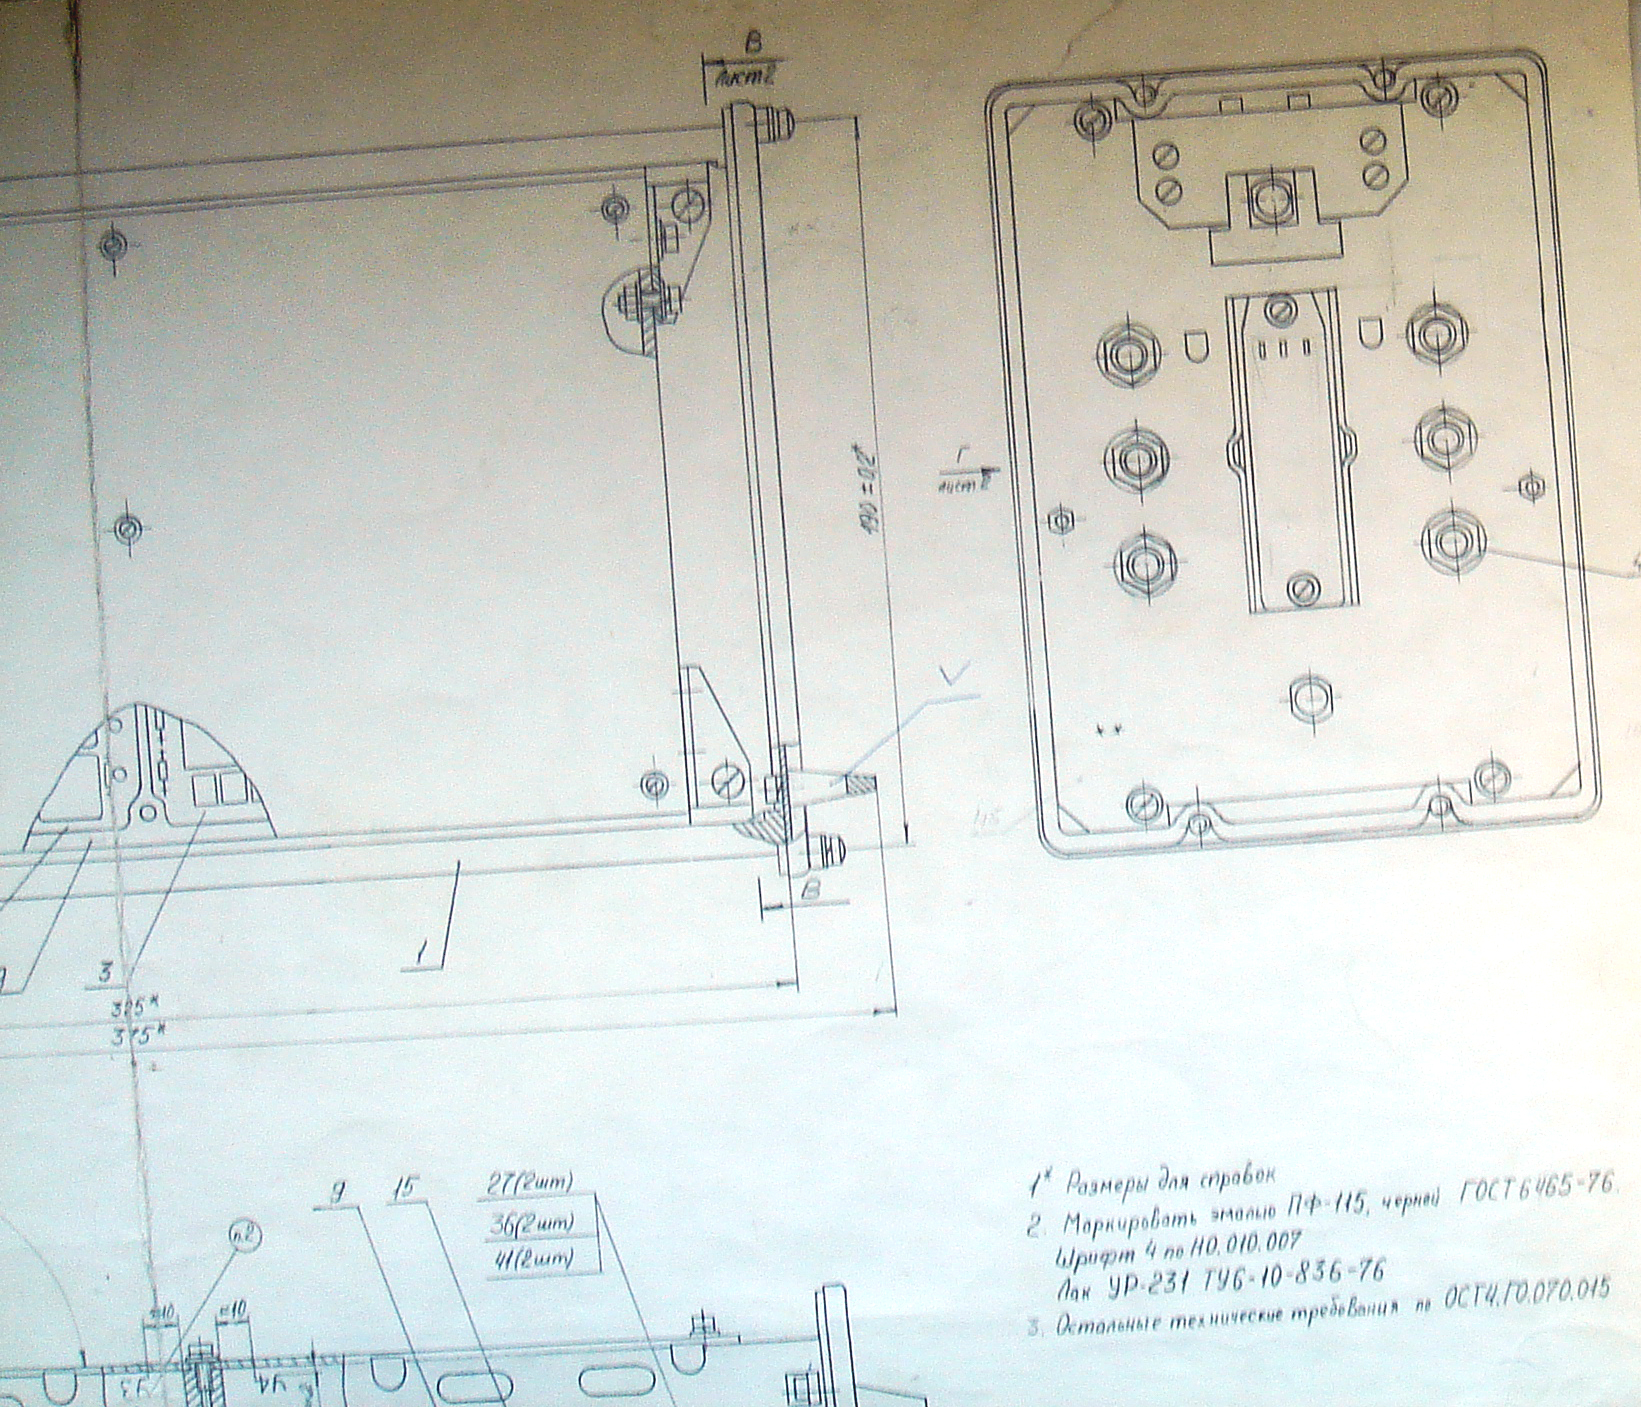 В
лист 2
190±0,2*
Г
лист 2
В
1
3
325*
375*
9
15
27(2шт)
36(2шт)
41(2шт)
п.2
≈10
≈10
У3
У4
1* Размеры для справок
2. Маркировать эмалью ПФ-115, черной ГОСТ 6465-76.
Шрифт 4 по НО.010.007
Лак УР-231 ТУ6-10-836-76
3. Остальные технические требования по ОСТ4.ГО.070.015